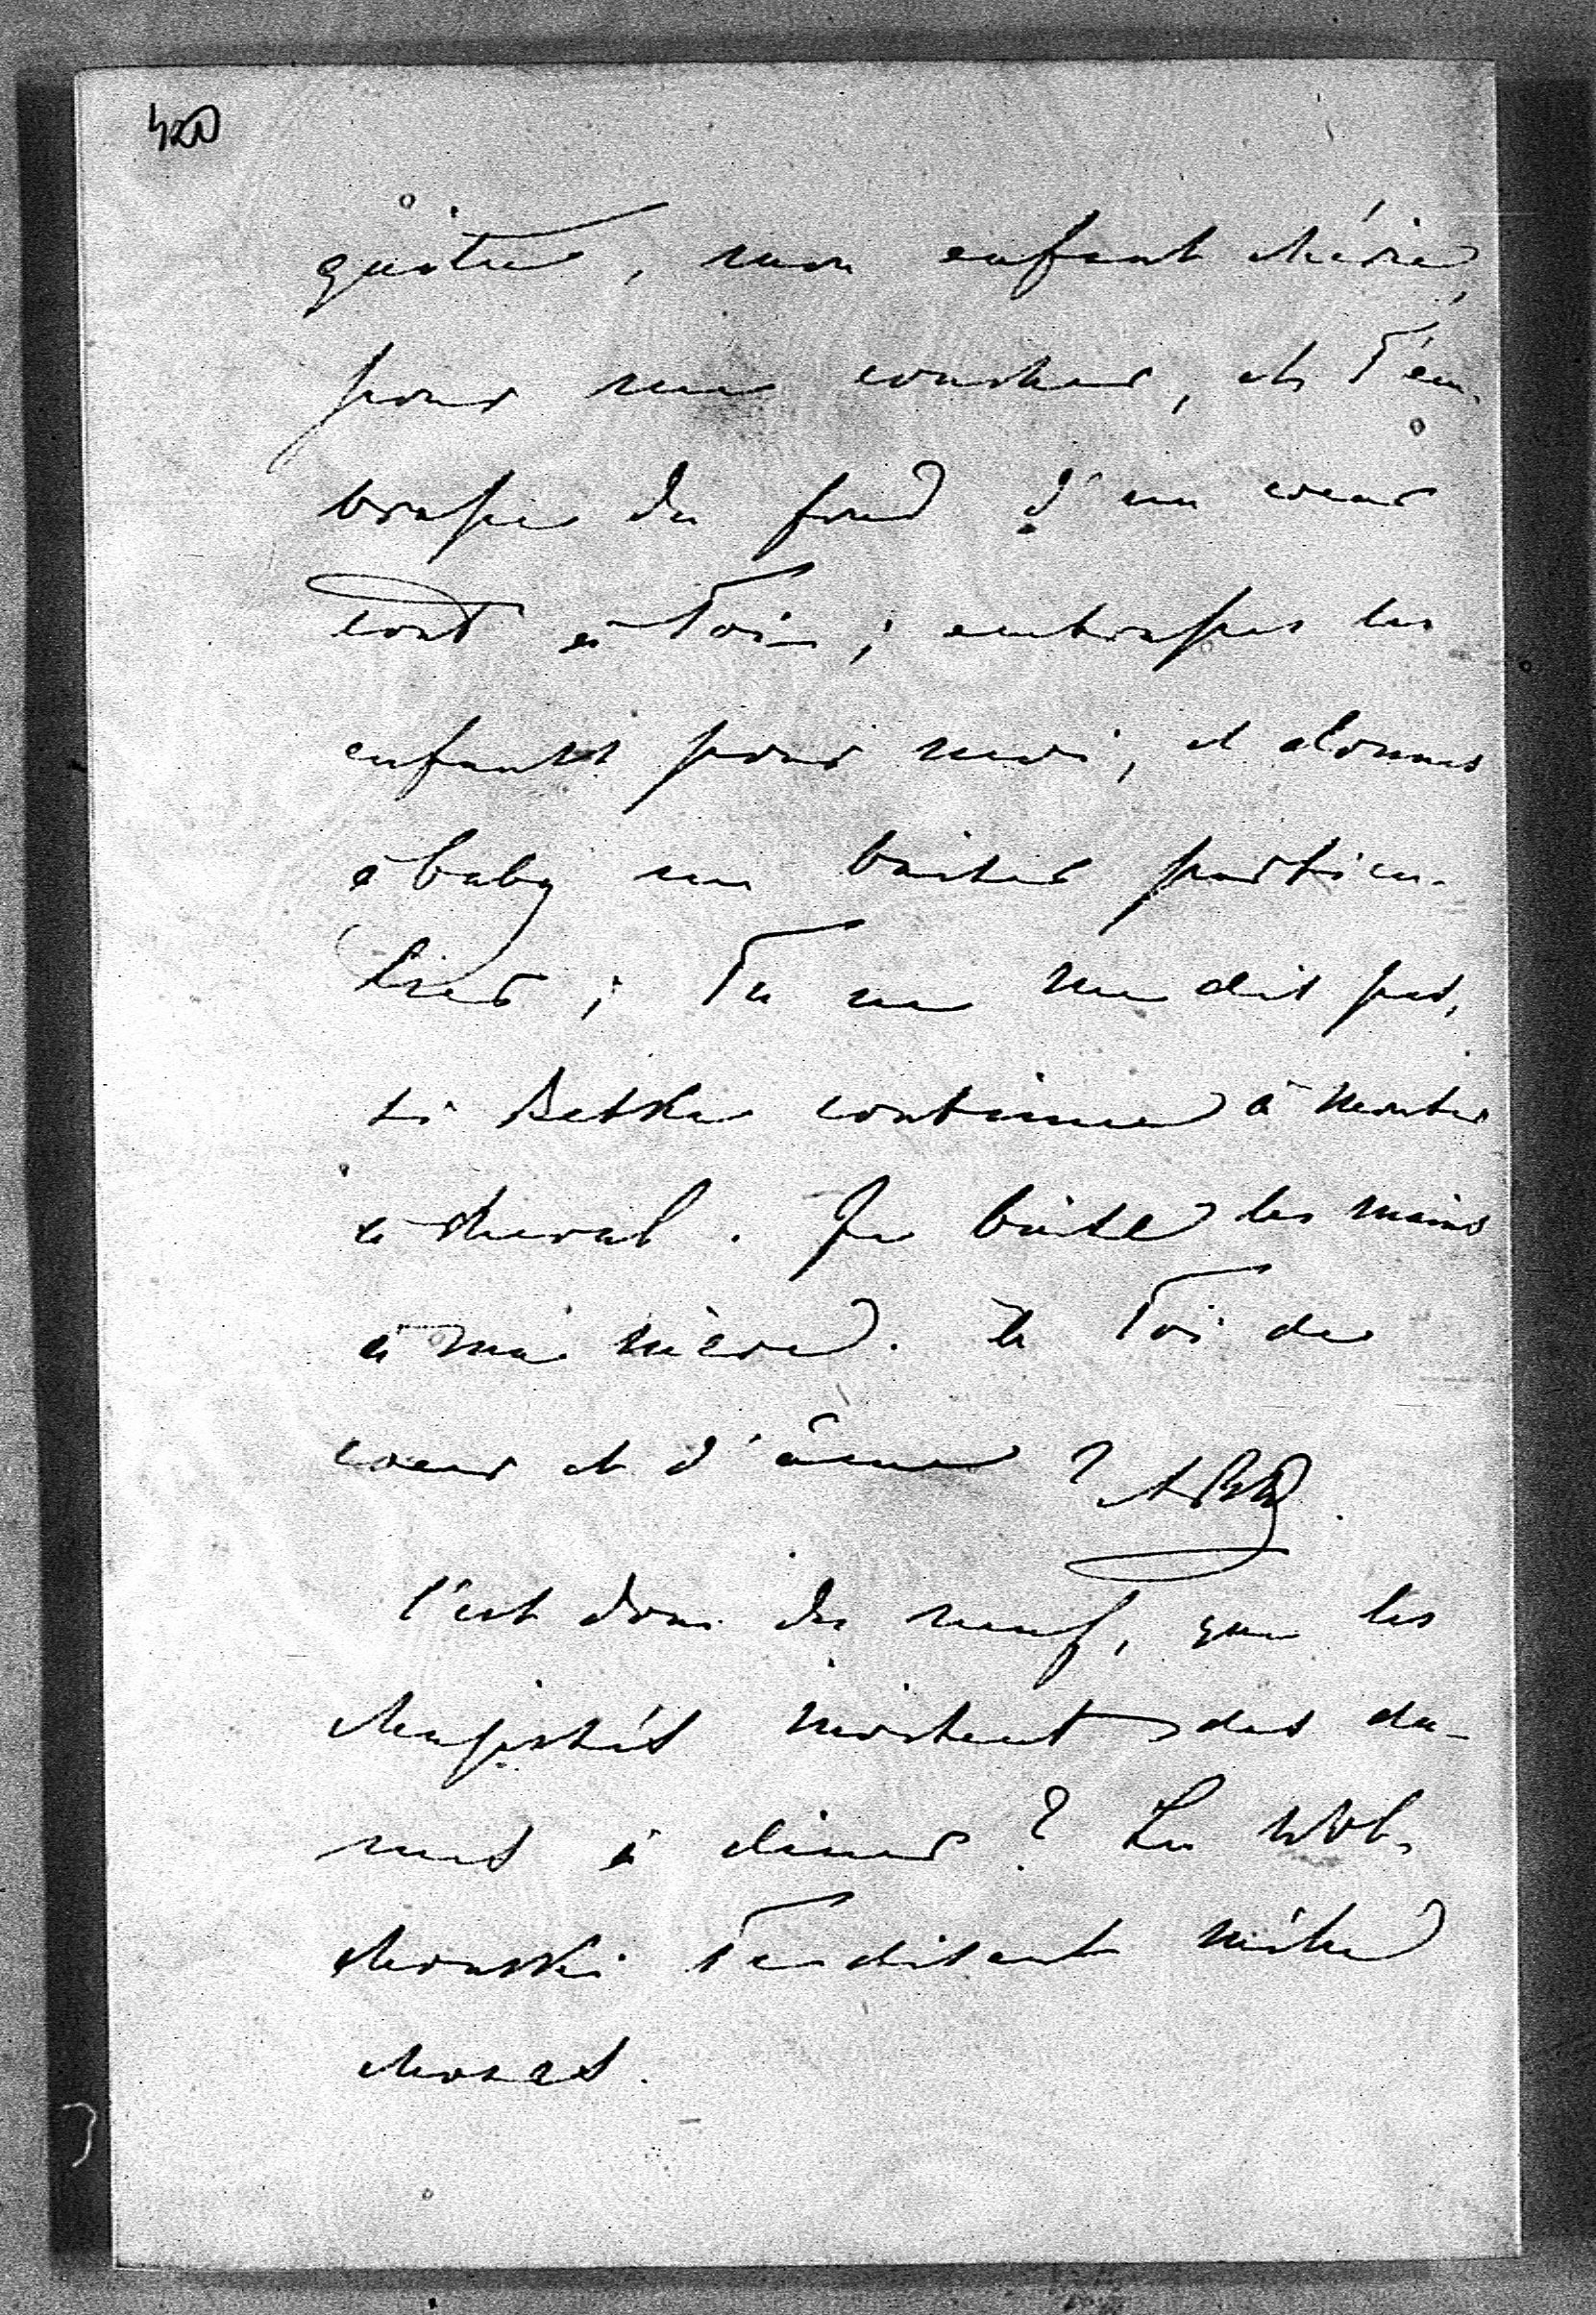 quitte, mon enfant chérie,
pour me coucher, et T'em-
brasse du fond d'un coeur
tout à Toi; embrasses les
enfants pour moi, et donnes
à baby un baiser particu-
lier; Tu ne me dis pas,
si Betka continue à monter
à cheval. Je baise les mains
à ma mère. à Toi de
coeur et d'âme
C'est donc du neuf, que les
Majestés invitent des da-
mes à diner? La
Te disant mille
choses.